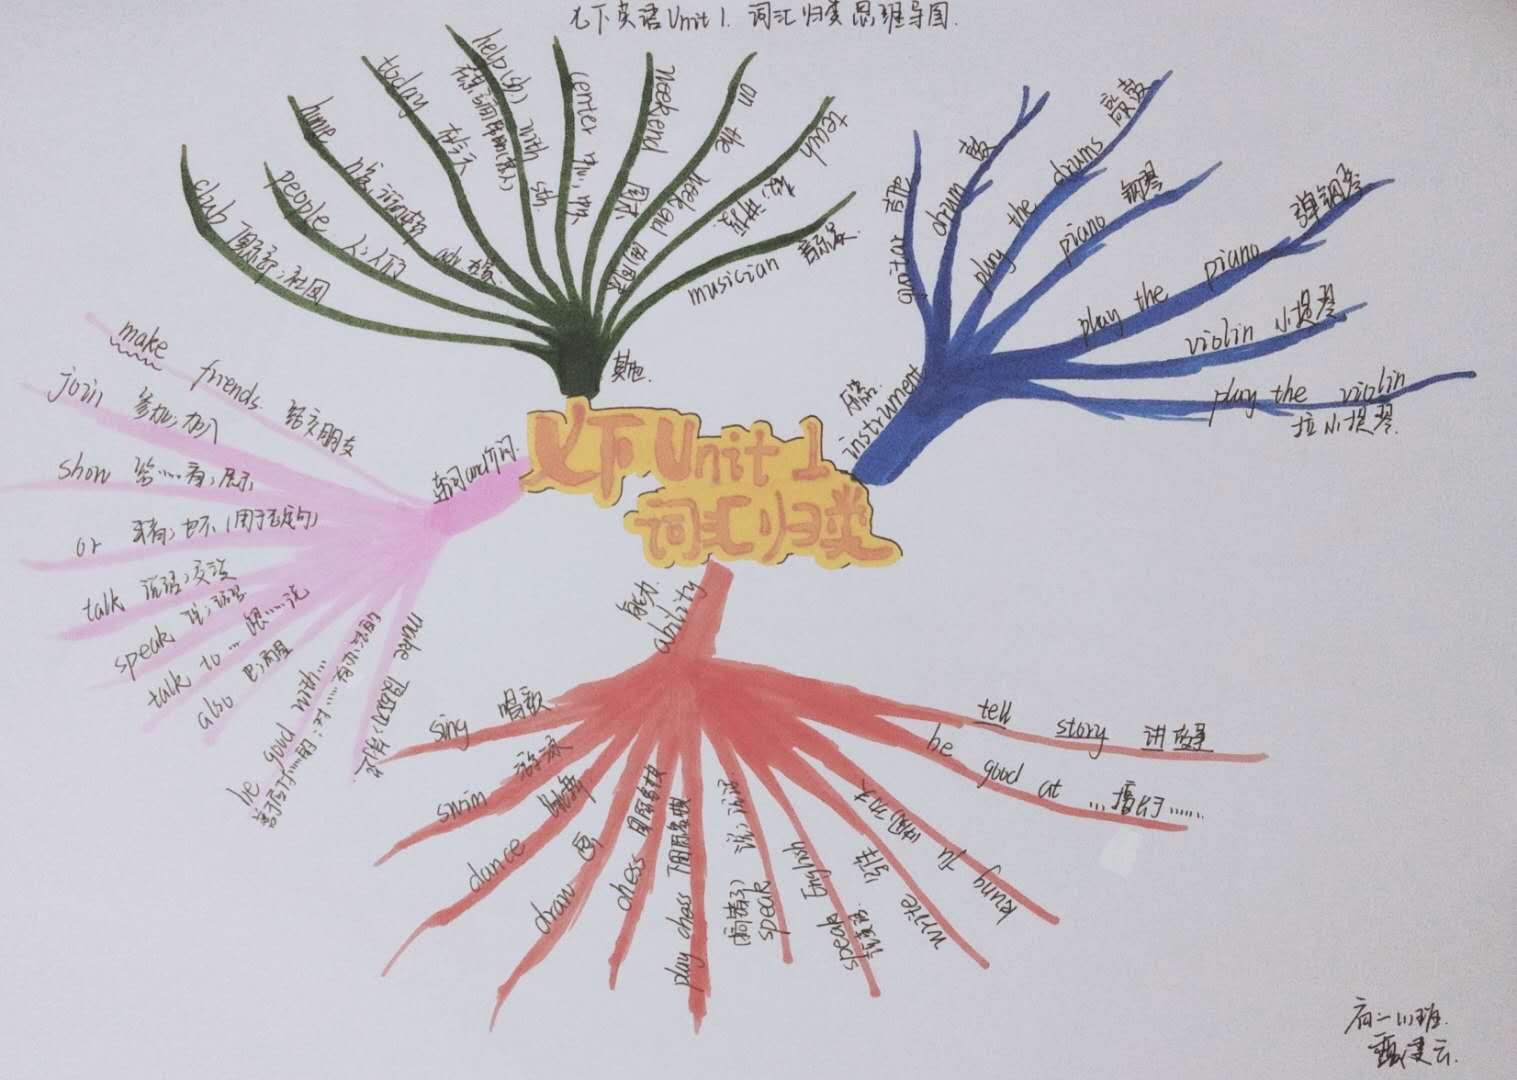 七下英语Unit 1. 词汇归类思维导图.
七下Unit 1
词汇归类
其他.
club 俱乐部；社团
people 人；人们
home
today 在今天
help(sb.) with sth.
center 中心，中央
weekend 周末
on the weekend
teach 教，讲授
musician 音乐家
乐器.
instrument
guitar 吉他
drum 鼓
play the drums 敲鼓
piano 钢琴
play the piano 弹钢琴
violin 小提琴
play the violin
拉小提琴.
make friends 结交朋友
join 参加；加入
show 给……看；展示
or 或者；也不（用于否定句）
talk 说话；交谈
speak 说；说话
talk to … 跟……说
also 也；而且
be good with…
make
能力.
ability
sing 唱歌
swim 游泳
dance 跳舞
draw 画
chess 国际象棋
play chess 下国际象棋
speak 说；说话
（某种语言）
speak English
说英语.
write 写作
kung fu (中国)功夫
be good at …擅长于……
tell story 讲故事